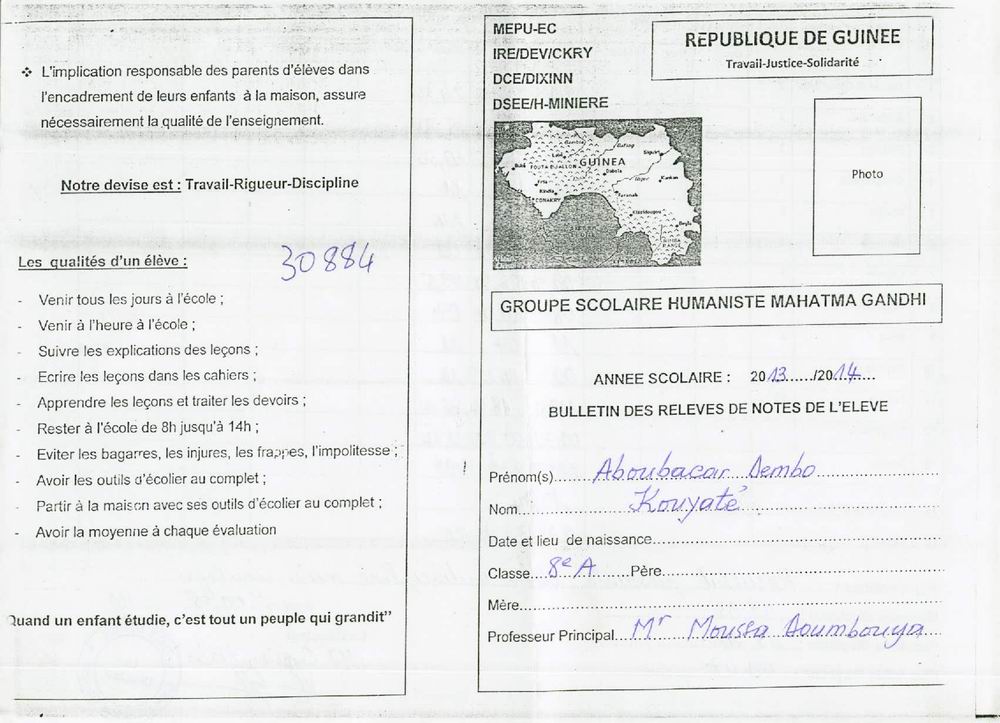 ❖ L'implication responsable des parents d'élèves dans
l'encadrement de leurs enfants à la maison, assure
nécessairement la qualité de l'enseignement.
Notre devise est : Travail-Rigueur-Discipline
30884
Les qualités d'un élève :
- Venir tous les jours à l'école ;
- Venir à l'heure à l'école ;
- Suivre les explications des leçons ;
- Ecrire les leçons dans les cahiers ;
- Apprendre les leçons et traiter les devoirs ;
- Rester à l'école de 8h jusqu'à 14h ;
- Eviter les bagarres, les injures, les frappes, l'impolitesse ;
- Avoir les outils d'écolier au complet ;
- Partir à la maison avec ses outils d'écolier au complet ;
- Avoir la moyenne à chaque évaluation
Quand un enfant étudie, c'est tout un peuple qui grandit"
MEPU-EC
IRE/DEV/CKRY
DCE/DIXINN
DSEE/H-MINIERE
REPUBLIQUE DE GUINEE
Travail-Justice-Solidarité
Photo
GUINEA
FOUTA DJALLON
Labé
Dabola
Siguiri
Kankan
Kindia
CONAKRY
Faranah
Kissidougou
GROUPE SCOLAIRE HUMANISTE MAHATMA GANDHI
ANNEE SCOLAIRE : 2013....../2014....
BULLETIN DES RELEVES DE NOTES DE L'ELEVE
Prénom(s)....... Aboubacar Dembo
Nom....... Kouyaté
Date et lieu de naissance.......
Classe. 8e A Père.......
Mère.......
Professeur Principal... Mr Moussa Doumbouya